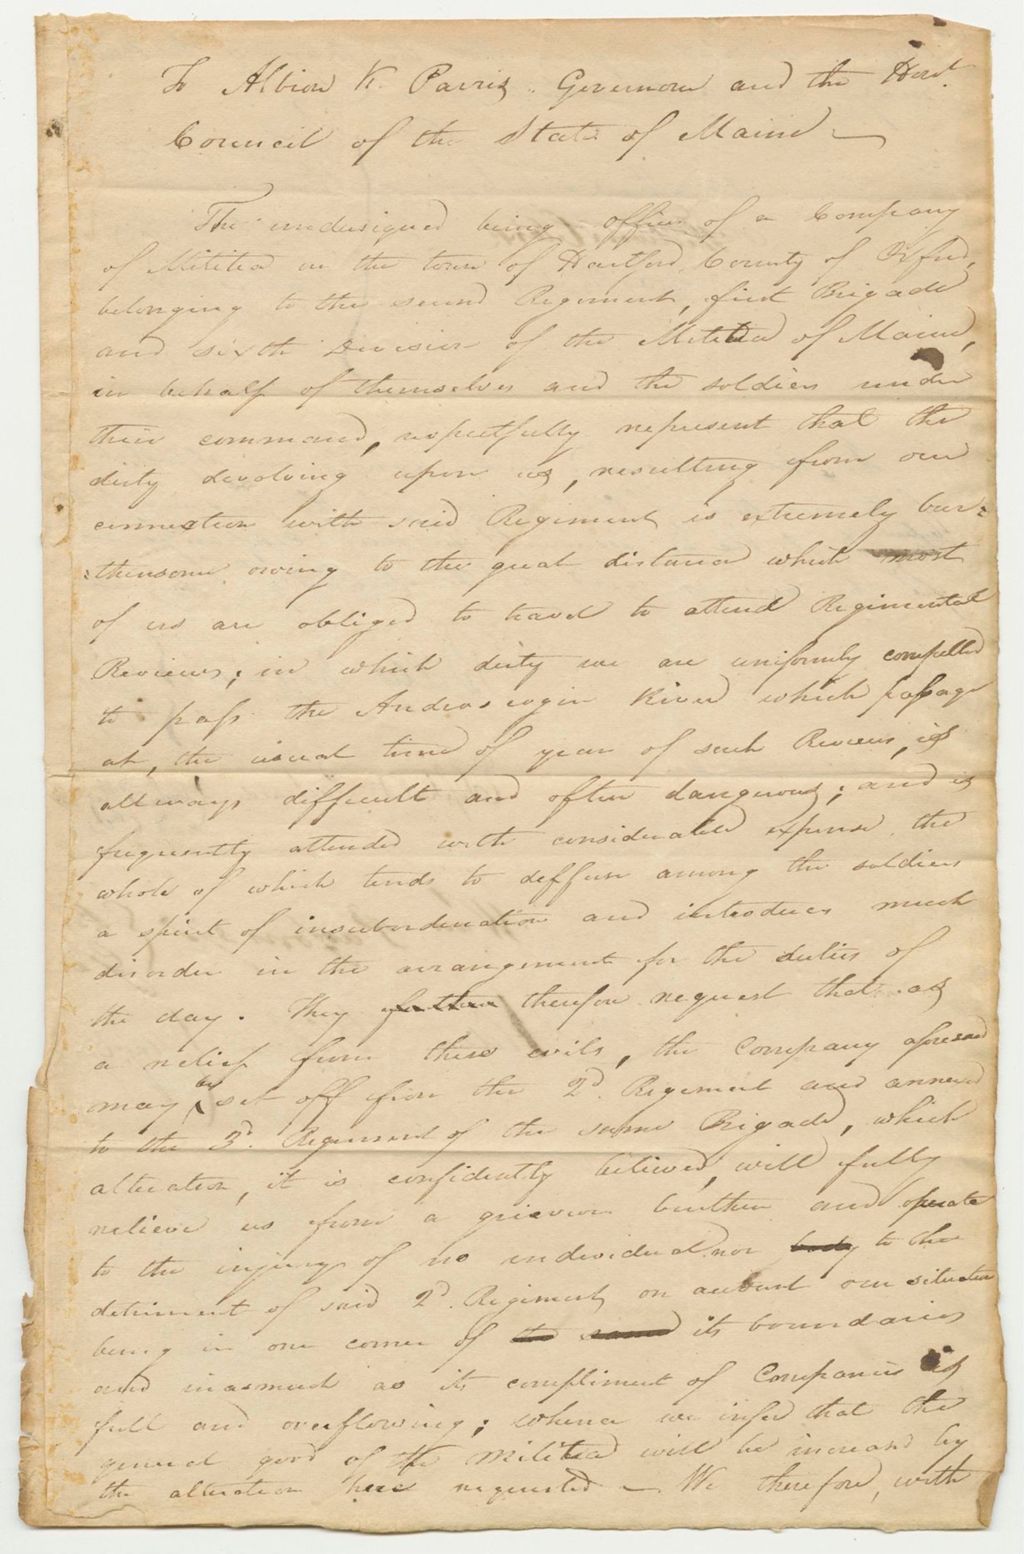 To Albion K. Parris, Governor and the Honl.
Council of the State of Maine —
The undersigned being officers of a Company
of Militia in the town of Hartford, County of Oxford,
belonging to the second Regiment, first Brigade
and sixth Division of the Militia of Maine,
in behalf of themselves and the soldiers under
their command, respectfully represent that the
duty devolving upon us, resulting from our
connection with said Regiment is extremely bur=
=thensome owing to the great distance which most
of us are obliged to travel to attend Regimental
Reviews; in which duty we are uniformly compelled
to pass the Androscogin River which passage
at, the usual time of year of such Reviews, is
allways difficult and often dangerous; and is
frequently attended with considerable expense the
whole of which tends to diffuse among the soldiers
a spirit of insubordination and introduces much
disorder in the arrangement for the duties of
the day. They further therefore request that as
a relief from these evils, the Company aforesaid
may be set off from the 2d. Regiment and annexed
to the 3d. Regiment of the same Brigade, which
alteration, it is confidently believed, will fully
relieve us from a grievous burthen and operate
to the injury of no individual nor body to the
detriment of said 2d. Regiment on account our situation
being in one corner of the same its boundaries
and inasmuch as its compliment of Companies is
full and overflowing; whence we infer that the
general good of the Militia will be increased by
the alteration here requested — We therefore, with